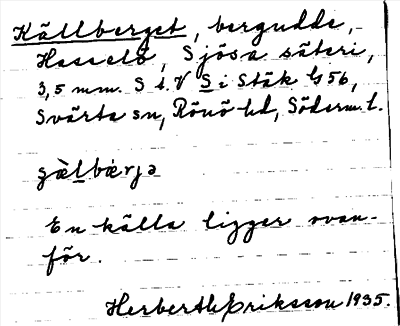 Källberget, bergudde,
Hasselö, Sjösa säteri,
3,5 mm. S t. V S i Stäk G 56,
Svärta sn, Rönö hd, Söderm. l.
gä̀lbærjə
En källa ligger ovan-
för.
Herberth Eriksson 1935.